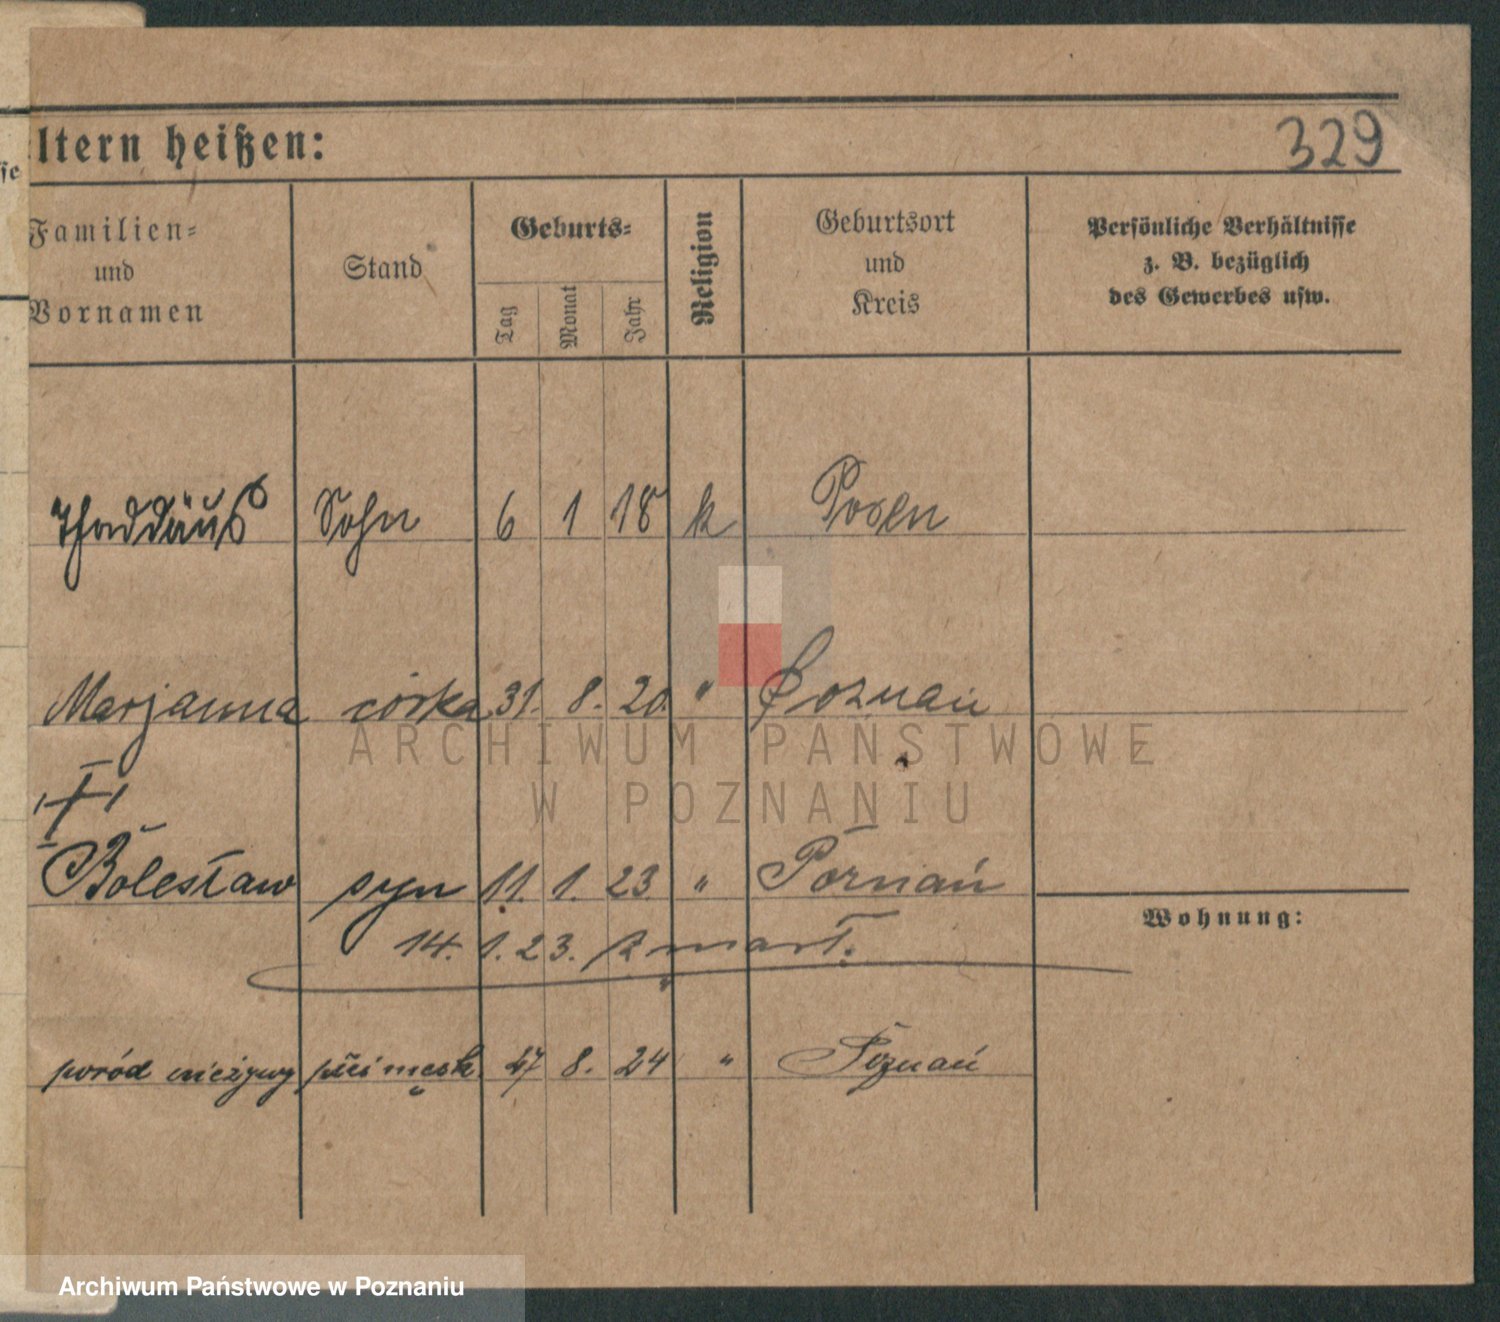 ltern heißen:
329
Familien-
und
Vornamen
Stand
Geburts-
Tag
Monat
Jahr
Religion
Geburtsort
und
Kreis
Persönliche Verhältnisse
z. B. bezüglich
des Gewerbes usw.
Thaddäus Sohn 6 1 18 k Posen
Marjanna córka 31. 8. 20. " Poznań
Bolesław syn 11. 1. 23. " Poznań
14. 1. 23. zmarł.
Wohnung:
poród nieżywy płci męsk. 8. 24 " Poznań
ARCHIWUM PAŃSTWOWE
W POZNANIU
Archiwum Państwowe w Poznaniu